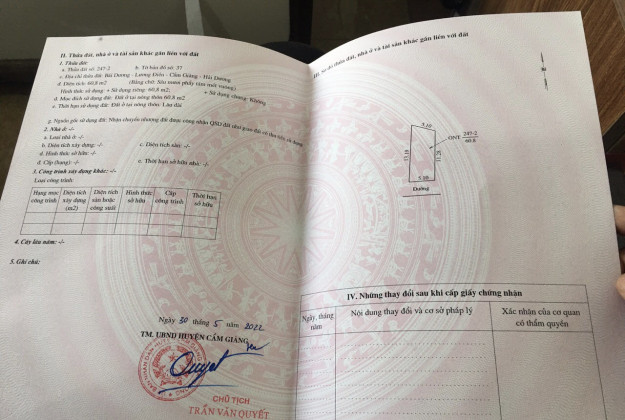 II. Thửa đất, nhà ở và tài sản khác gắn liền với đất
1. Thửa đất:
a. Thửa đất số: 247-2 b. Tờ bản đồ số: 37
c. Địa chỉ thửa đất: Bái Dương - Lương Điền - Cẩm Giàng - Hải Dương
d. Diện tích: 60,8 m2 (Bằng chữ: Sáu mươi phẩy tám mét vuông)
Hình thức sử dụng: + Sử dụng riêng: 60,8 m2; + Sử dụng chung: Không
đ. Mục đích sử dụng đất: Đất ở tại nông thôn 60.8 m2
e. Thời hạn sử dụng đất: Đất ở tại nông thôn: Lâu dài
g. Nguồn gốc sử dụng đất: Nhận chuyển nhượng đất được công nhận QSD đất như giao đất có thu tiền sử dụng
2. Nhà ở: -/-
a. Loại nhà ở: -/-
b. Diện tích xây dựng: -/- c. Diện tích sàn: -/-
d. Hình thức sở hữu: -/-
đ. Cấp (hạng): -/- e. Thời hạn sở hữu nhà: -/-
3. Công trình xây dựng khác: -/-
Loại công trình:
Hạng mục công trình
Diện tích xây dựng (m2)
Diện tích sàn hoặc công suất
Hình thức sở hữu
Cấp công trình
Thời hạn sở hữu
4. Cây lâu năm: -/-
5. Ghi chú:
Ngày 30 tháng 5 năm 2022
TM. UBND HUYỆN CẨM GIÀNG
CHỦ TỊCH
TRẦN VĂN QUYẾT
III. Sơ đồ thửa đất, nhà ở và tài sản khác gắn liền với đất
ONT 247-2
60.8
Đường
IV. Những thay đổi sau khi cấp giấy chứng nhận
Ngày, tháng năm
Nội dung thay đổi và cơ sở pháp lý
Xác nhận của cơ quan có thẩm quyền